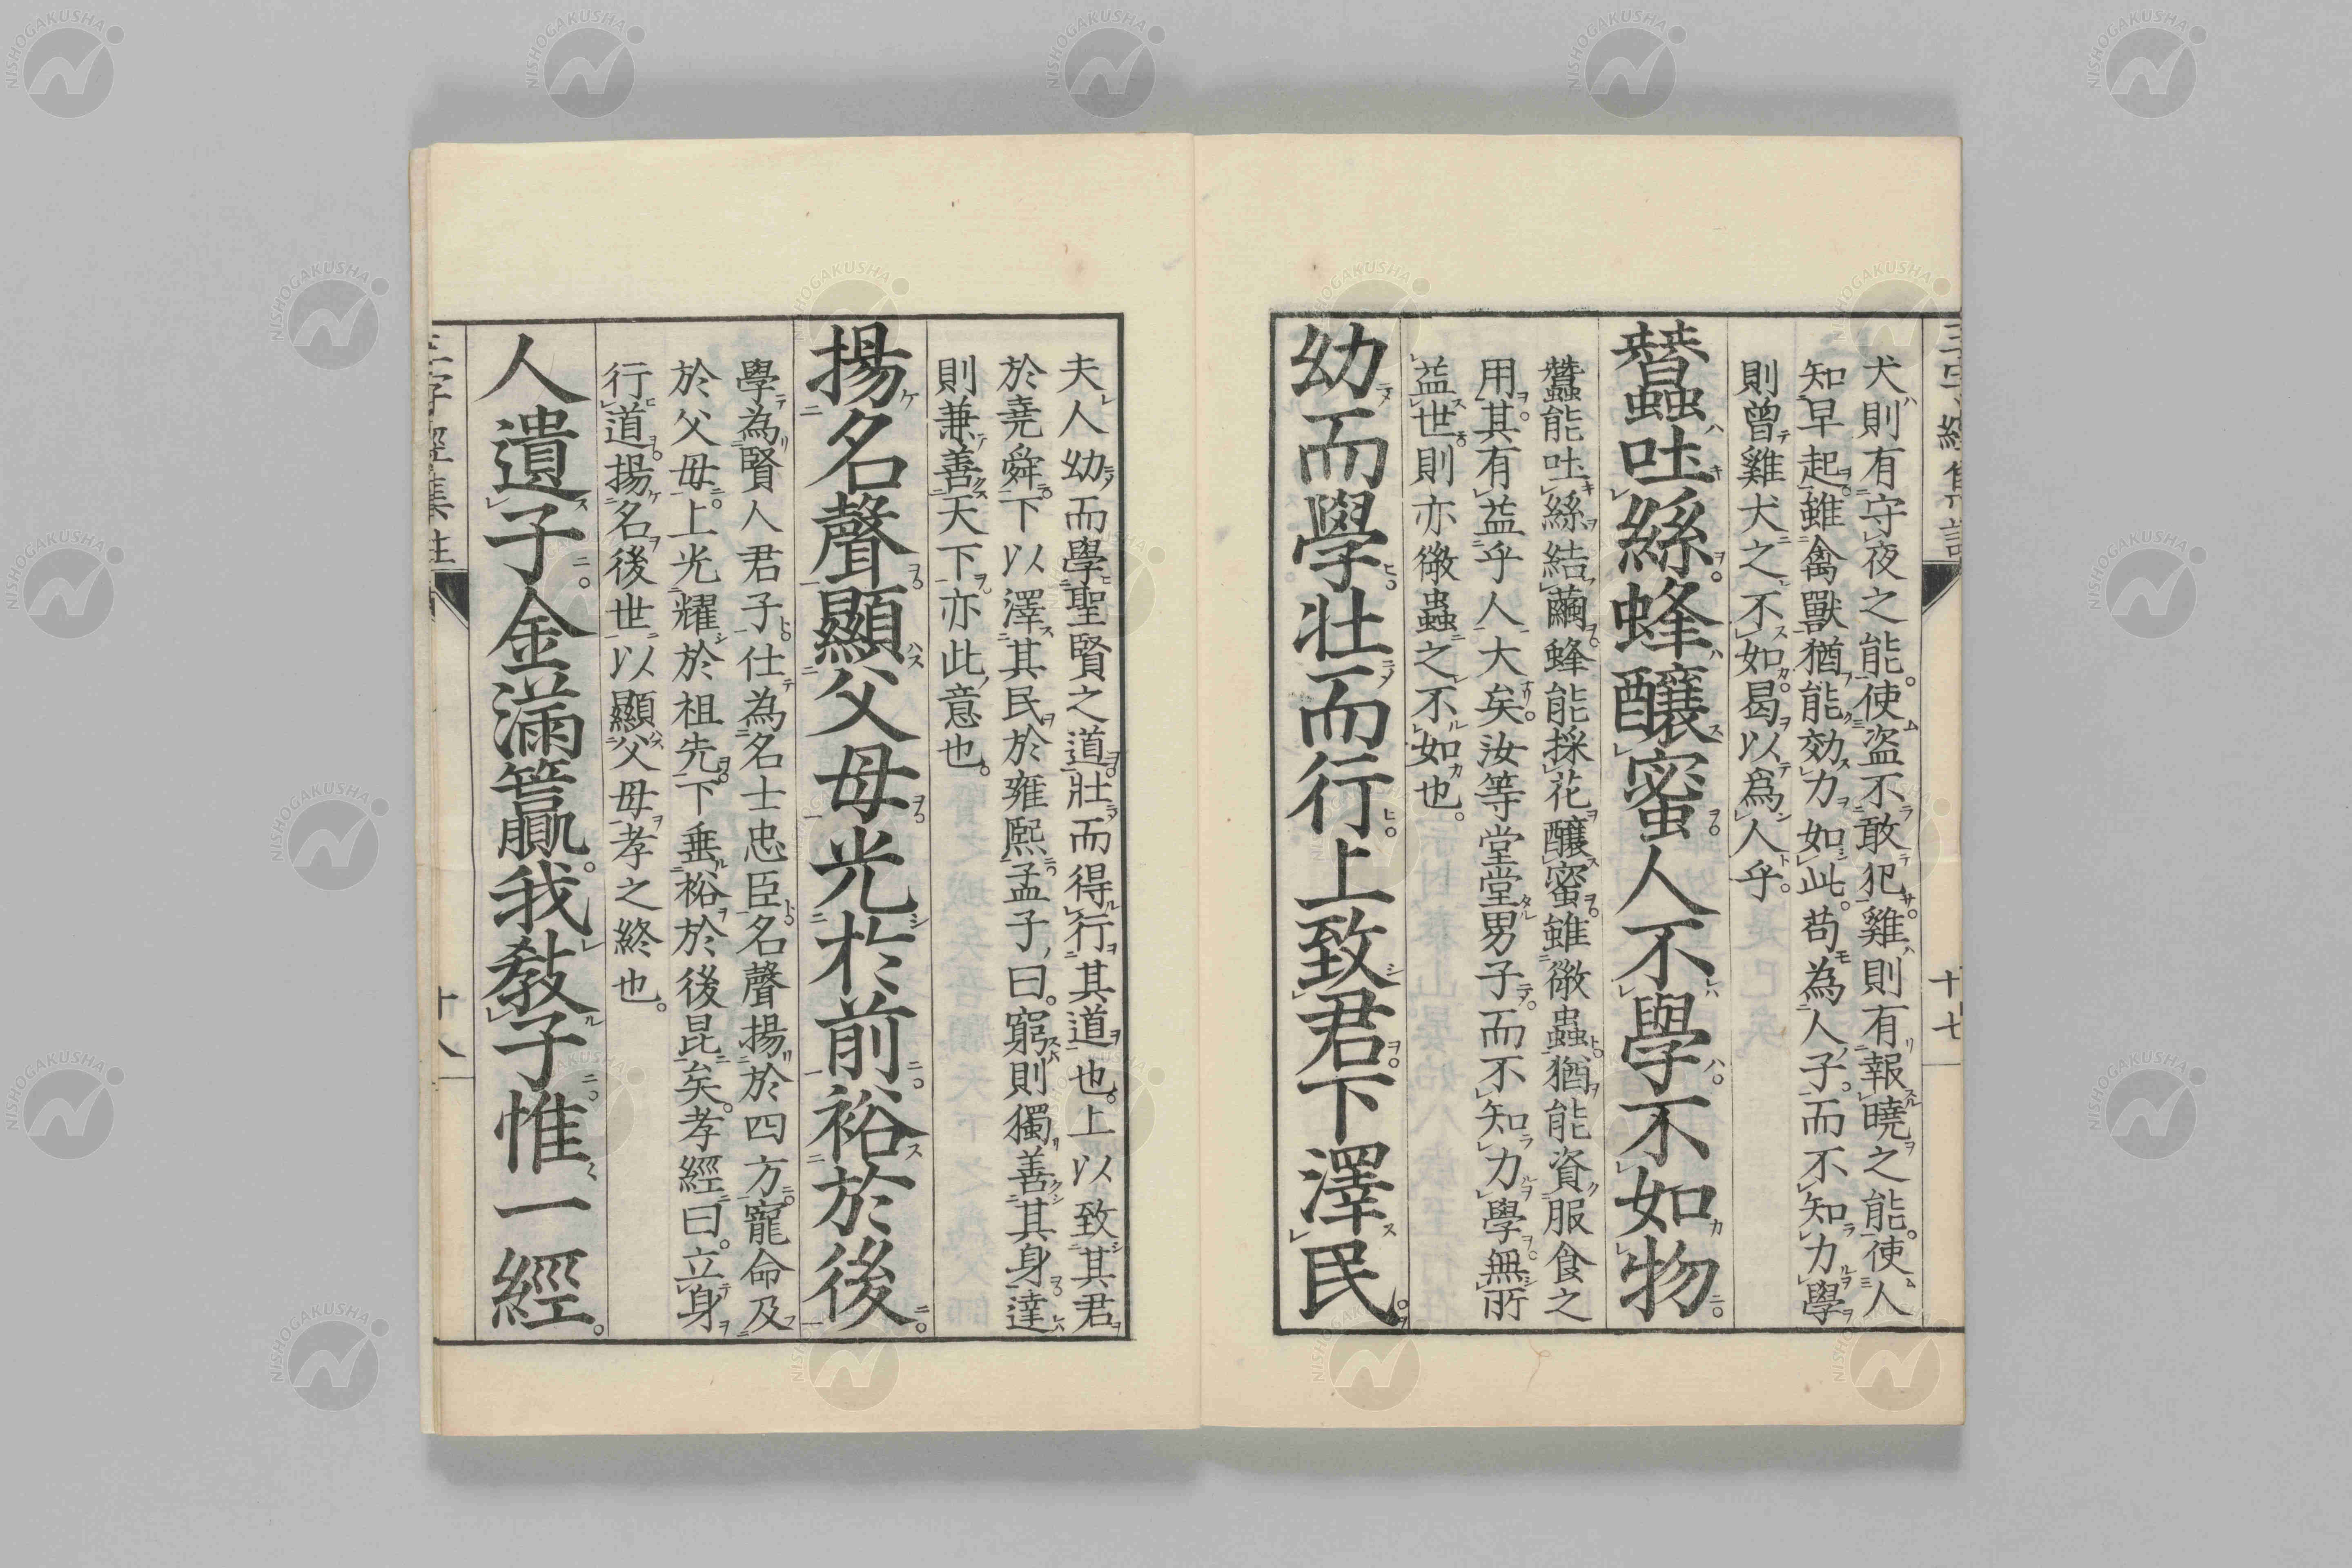 三字經集註
十七
犬則有守夜之能。使盗不敢犯。雞則有報曉之能。使人
知早起。雖禽獸猶能効力如此。苟為人子。而不知力學
則曾雞犬之不如。曷以爲人乎。
蠶吐絲。蜂醸蜜。人不學。不如物。
蠶能吐絲結繭。蜂能採花醸蜜。雖微蟲。猶能資服食之
用。其有益乎人大矣。汝等堂堂男子。而不知力學。無所
益世。則亦微蟲之不如也。
幼而學。壯而行。上致君。下澤民。
夫人幼而學聖賢之道。壯而得行其道也。上以致其君
於堯舜。下以澤其民於雍熙。孟子曰。窮則獨善其身。達
則兼善天下。亦此意也。
揚名聲。顯父母。光於前。裕於後。
學為賢人君子。仕為名士忠臣。名聲揚於四方。寵命及
於父母。上光耀於祖先。下垂裕於後昆矣。孝經曰。立身
行道。揚名後世。以顯父母。孝之終也。
人遺子。金滿籯。我敎子。惟一經。
三字經集註
十八
NISHOGAKUSHA